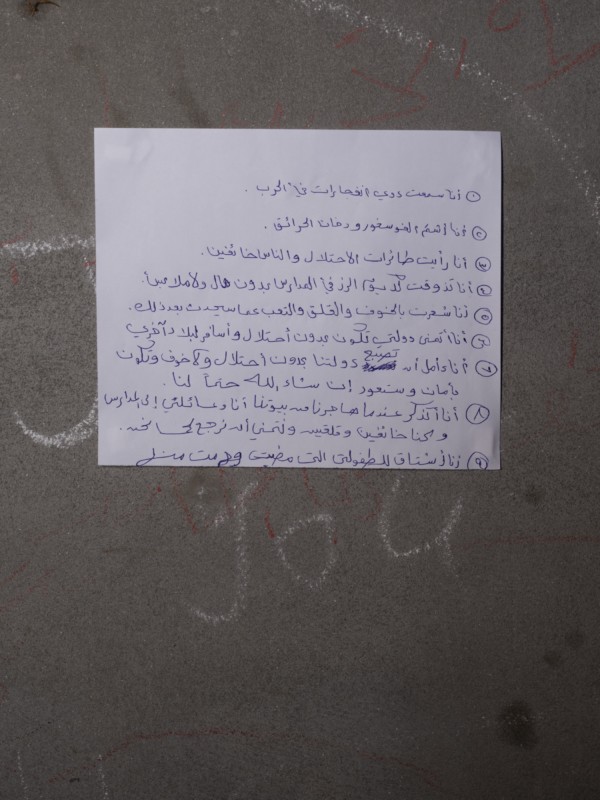 ١ أنا سمعت دوي انفجارات في الحرب .
٢ أنا أشتم الفوسفور ودخان الحرائق .
٣ أنا رأيت طائرات الاحتلال والناس خائفين .
٤ أنا تذوقت كل يوم الرز في المدارس بدون مال ولا ملابس .
٥ أنا شعرت بالخوف والقلق والتعب عما سيحدث بعد ذلك .
٦ أنا أتمنى دولتي تكون بدون أحتلال و أسافر لبلاد آخرى
٧ أنا أأمل أن تصبح دولتنا بدون أحتلال ولا خوف ونكون
بأمان وستعود إن شاء الله حتماً لنا .
٨ أنا أتذكر عندما هاجرنا من بيوتنا أنا وعائلتي إلى المدارس
وكنا خائفين وقلقين ونتمنى أن نرجع
٩ أنا أشتاق لطفولتي التي مضيتي
you